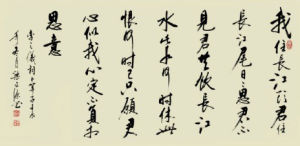 我住長江头君住
長江尾日日思君不
見君共饮長江
水此水几时休此
恨何时已只願君
心似我心定不负相
思意
李之儀词卜算子